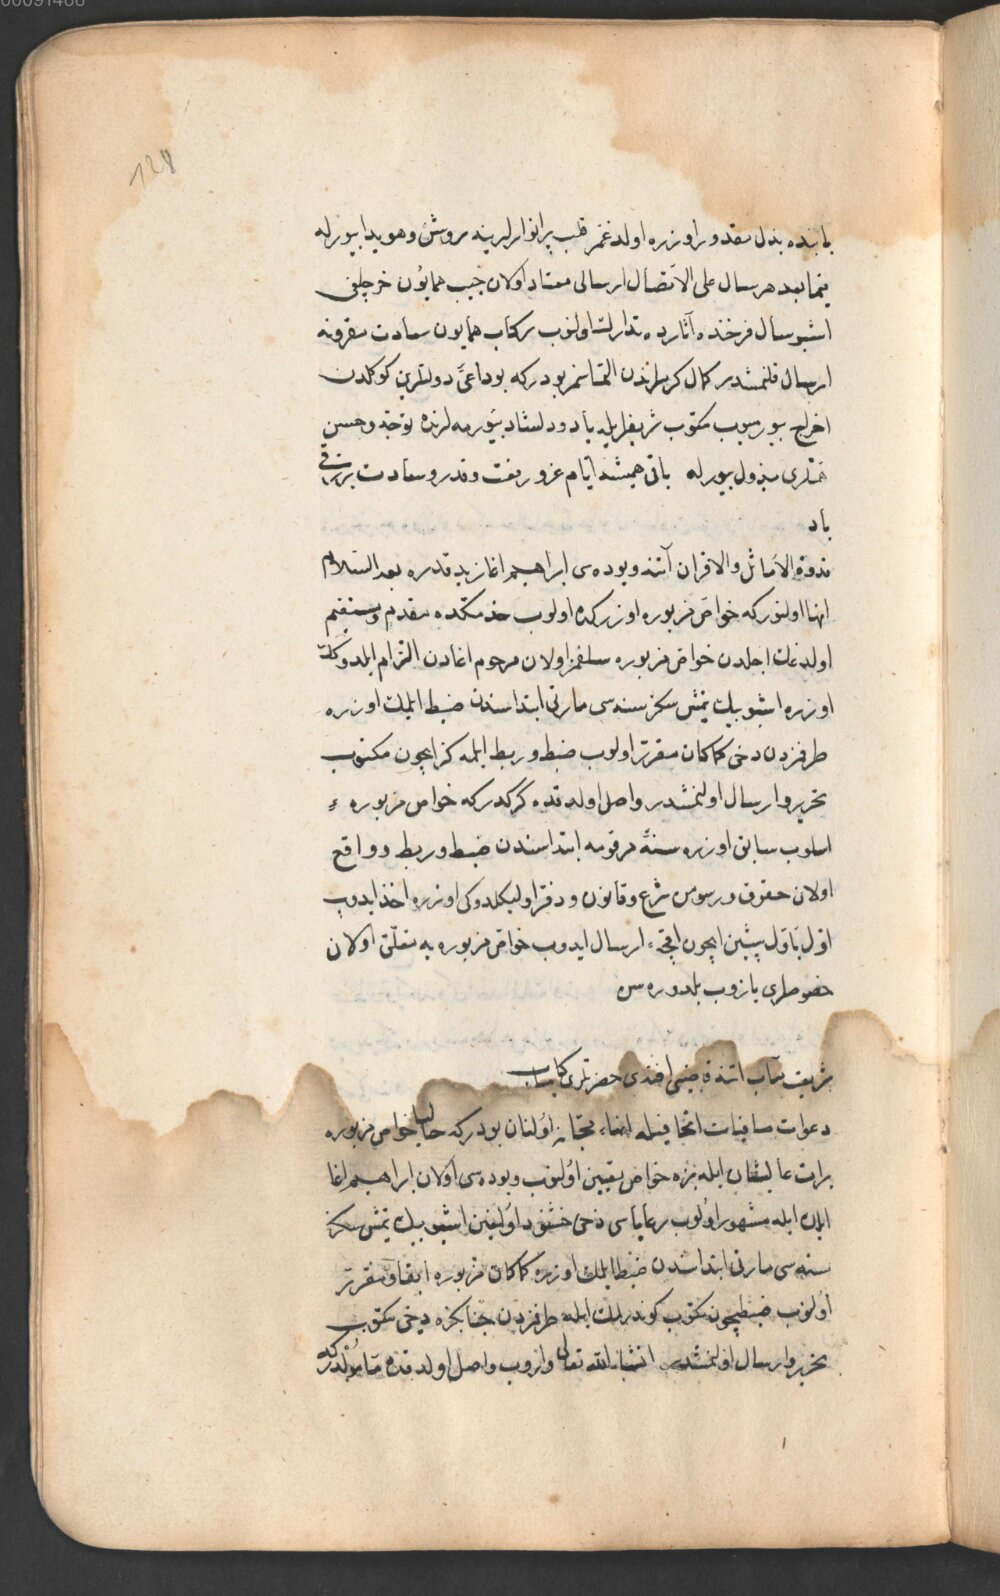 00091466
128
بابنده بذل مقدور اوزره اولدغمز قلب پر انوارلرينه روشن وهويدا بيوريله
فيما بعد هر سال على الاتصال ارسالى معتاد اولان جيب همايون خرجلغى
اشبو سال فرخنده آثارده تدارك اولنوب ركاب همايون سعادت مقرونه
ارسال قلنمشدر كمال كرملرندن التماسمز بودركه بو داعئ دولتلرين كوكلدن
اخراج بيورميوب مكتوب شريفلريله ياد ودلشاد بيورمه لرنده توجه وحسن
همتلرى مبذول بيوريله باقى هميشه ايام عز ورفعت وقدر وسعادت بر
باد
قدوة الاماثل والاقران آتنه ويوده سى ابراهيم اغا زيد قدره بعد السلام
انها اولنوركه خواص مزبوره اوزركده اولوب خدمتكده مقدم ومستقيم
اولدغك اجلدن خواص مزبوره سلفمز اولان مرحوم اغادن التزام ايلدوكك
اوزره اشبو بيك يتمش سكز سنه سى مارتى ابتداسندن ضبط ايلمك اوزره
طرفمزدن دخى كماكان مقرر اولوب ضبط وربط ايلمه كز ايچون مكتوب
تحرير وارسال اولنمشدر واصل اولدقده كركدركه خواص مزبوره ء
اسلوب سابق اوزره سنهٔ مرقومه ابتداسندن ضبط وربط وواقع
اولان حقوق ورسومن شرع وقانون ودفتر اوليكلدوكى اوزره اخذ ايدوب
اول باول پيشين ايچون اقچه ء ارسال ايدوب خواص مزبوره يه متعلق اولان
خصوصلرى يازوب بلدوره سن
شريعت مآب آتنه قاضيسى افندى حضرتلرى كامياب
دعوات صافيات اتحافيله انهاء محبانه اولنان بودركه حاليا خواص مزبوره
برات عاليشان ايله بزه خواص تعيين اولنوب ويوده سى اولان ابراهيم اغا
ايله مشهور اولوب رعاياسى دخى خشنود اولمغين اشبو بيك يتمش سكز
سنه سى مارتى ابتداسندن ضبط ايلمك اوزره كماكان مزبوره ابقا ومقرر
اولنوب ضبطيچون مكتوب كوندرلمك ايله طرفمزدن جنابكزه دخى مكتوب
تحرير وارسال اولنمشدر انشاء الله تعالى واروب واصل اولدقده مأمولدركه